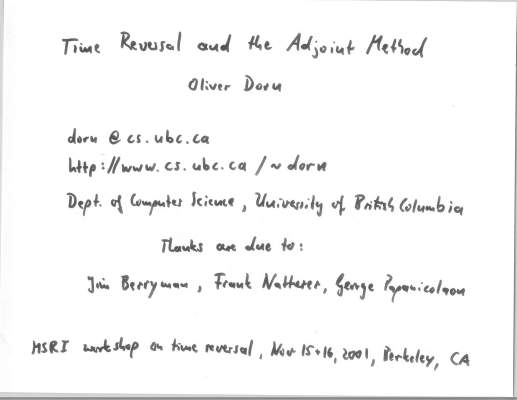 Time Reversal and the Adjoint Method
Oliver Dorn
dorn @ cs.ubc.ca
http://www.cs.ubc.ca/~dorn
Dept. of Computer Science, University of British Columbia
Thanks are due to:
Jim Berryman, Frank Natterer, George Papanicolaou
MSRI workshop on time reversal, Nov 15+16, 2001, Berkeley, CA